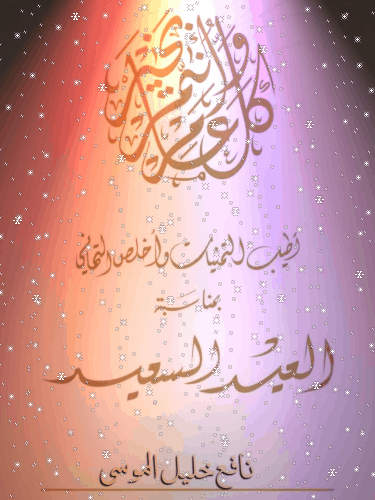 كل عام وأنتم بخير
أطيب التمنيات وأخلص التهاني
بمناسبة
العيد السعيد
نافع خليل الموسى